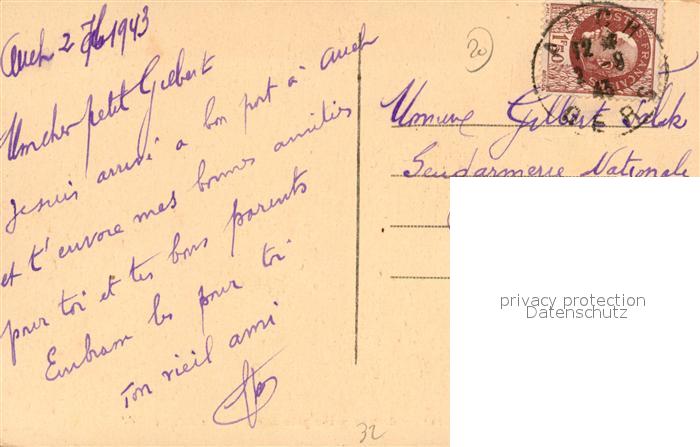 Auch 2 1943
Mon cher petit Gilbert
Je suis arrivé a bon port à Auch
et t'envoie mes bonnes amitiés
pour toi et tes bons parents
Embrasse les pour toi
Ton vieil ami
20
AUCH
12
2 -9
43
GERS
POSTES FRANÇAISES
1F50
Monsieur Gilbert
Gendarmerie Nationale
privacy protection
Datenschutz
32